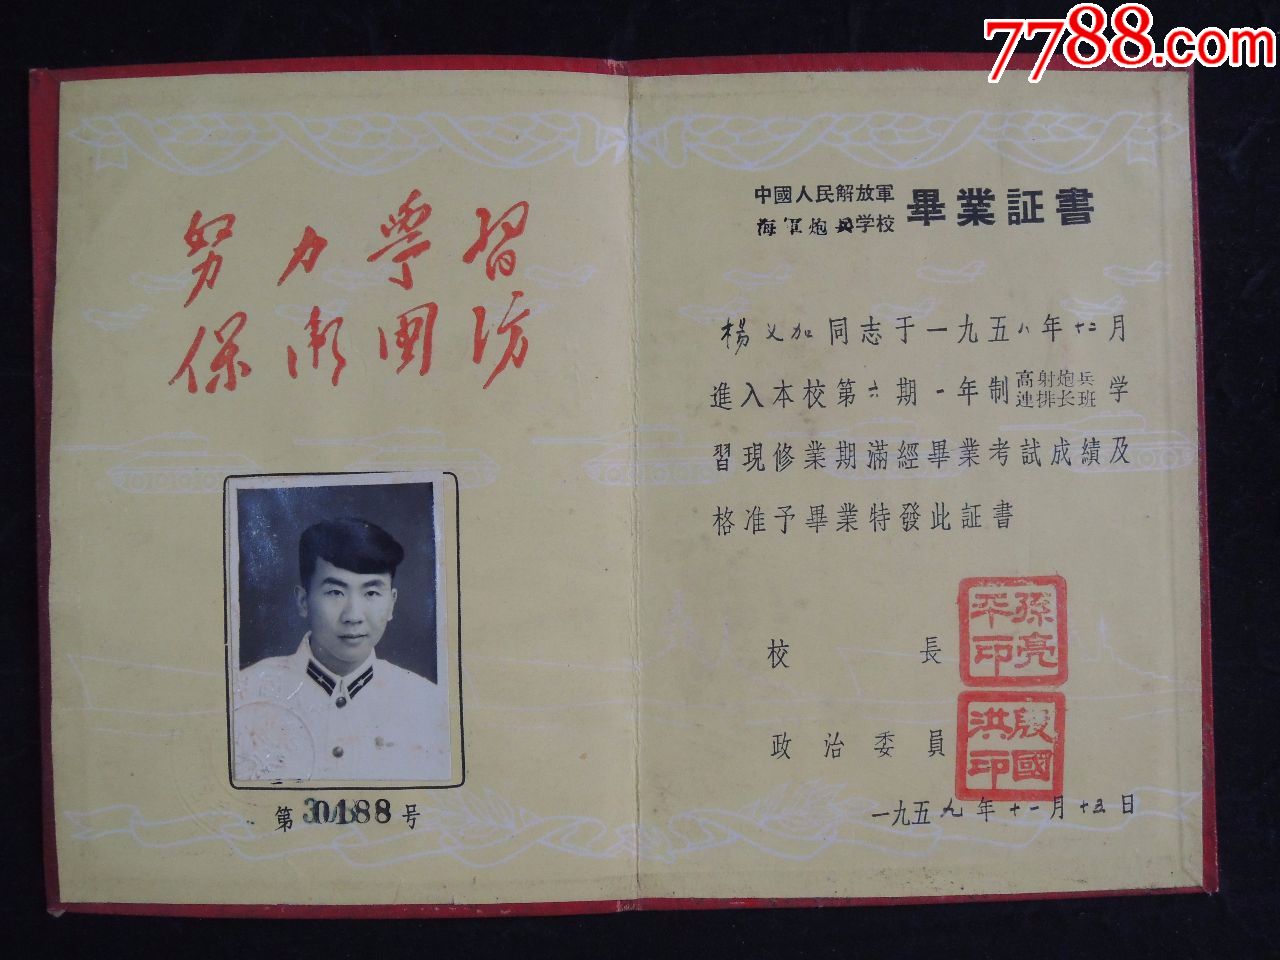 7788.com
努力學習
保衛國防
第30188号
中國人民解放軍
海軍炮兵学校
畢業証書
楊义加同志于一九五八年十二月
進入本校第六期一年制高射炮兵連排长班学
習現修業期滿經畢業考試成績及
格准予畢業特發此証書
校長
孫亮平印
政治委員
殷國洪印
一九五九年十一月十五日